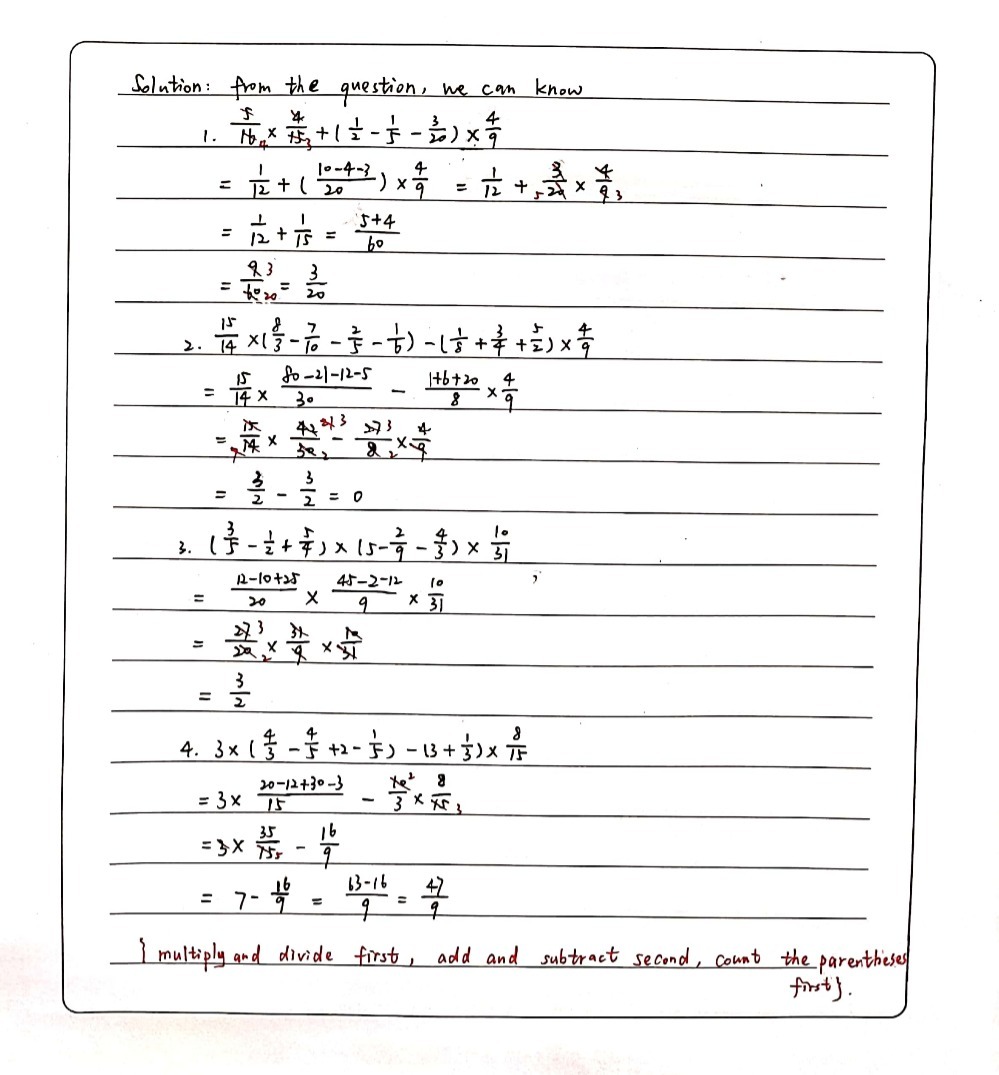 Solution: from the question, we can know
1. 5/16 4 × 4/15 3 + (1/2 - 1/5 - 3/20) × 4/9
= 1/12 + (10-4-3/20) × 4/9 = 1/12 + 5 3/20 × 4/9 3
= 1/12 + 1/15 = 5+4/60
= 9 3/60 20 = 3/20
2. 15/14 × (8/3 - 7/10 - 2/5 - 1/6) - (1/8 + 3/4 + 5/2) × 4/9
= 15/14 × 80-21-12-5/30 - 1+6+20/8 × 4/9
= 15/7 14 × 42 21 3/30 2 - 27 3/8 2 × 4/9
= 3/2 - 3/2 = 0
3. (3/5 - 1/2 + 5/4) × (5 - 2/9 - 4/3) × 10/31
= 12-10+25/20 × 45-2-12/9 × 10/31
= 27 3/20 2 × 31/9 × 10/31
= 3/2
4. 3 × (4/3 - 4/5 + 2 - 1/5) - (3 + 1/3) × 8/15
= 3 × 20-12+30-3/15 - 10 2/3 × 8/15 3
= 3 × 35/15 5 - 16/9
= 7 - 16/9 = 63-16/9 = 47/9
} multiply and divide first, add and subtract second, count the parentheses
first}.